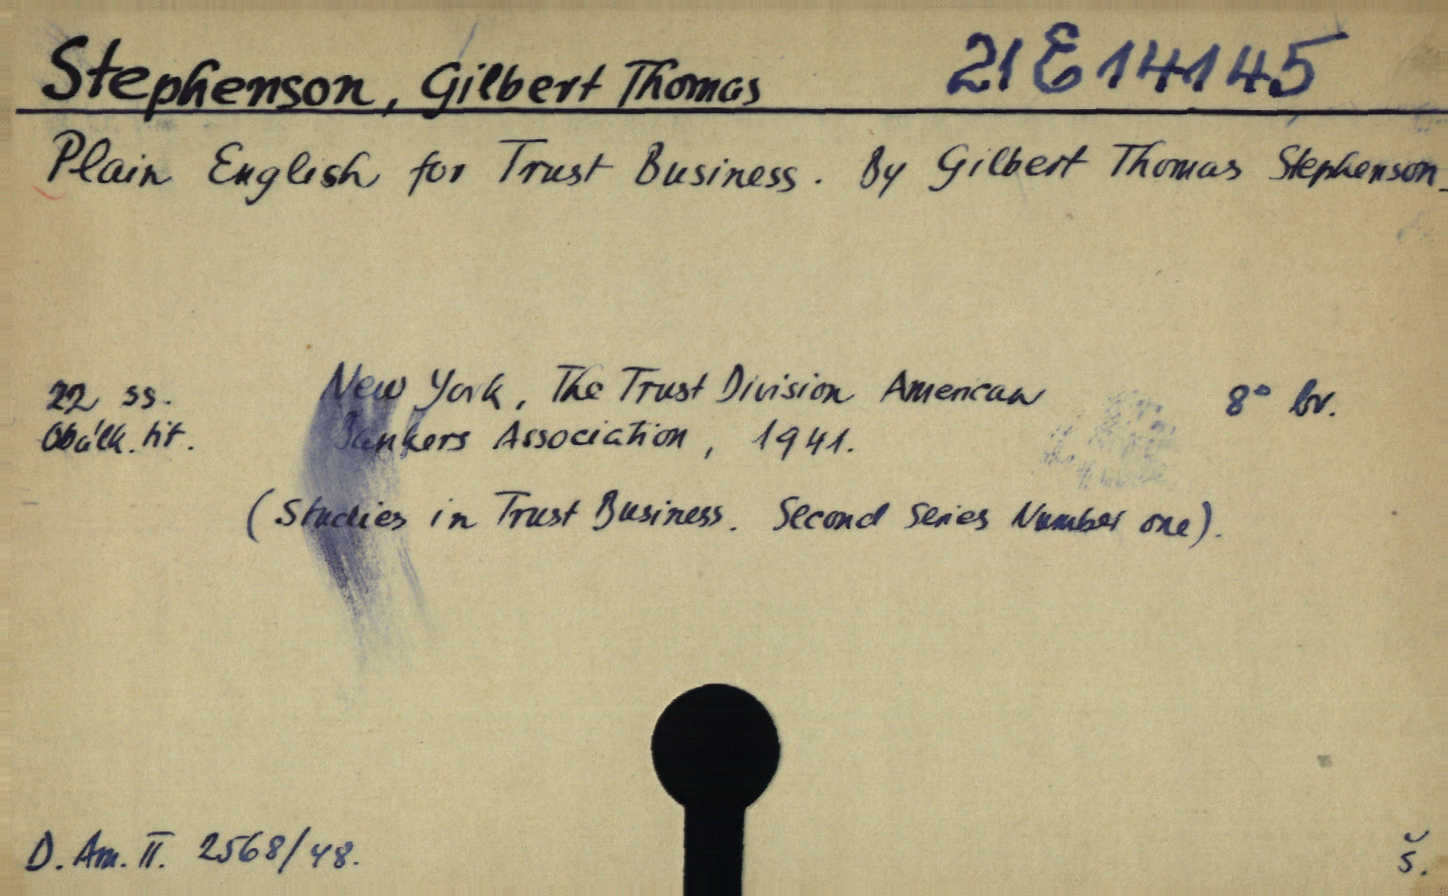 Stephenson, Gilbert Thomas 21 E 14145
Plain English for Trust Business. By Gilbert Thomas Stephenson.
22 ss. New York, The Trust Division American 8° br.
Obálk. tit. Bankers Association, 1941.
(Studies in Trust Business. Second Series Number one).
D. Am. II. 2568/48. Š.